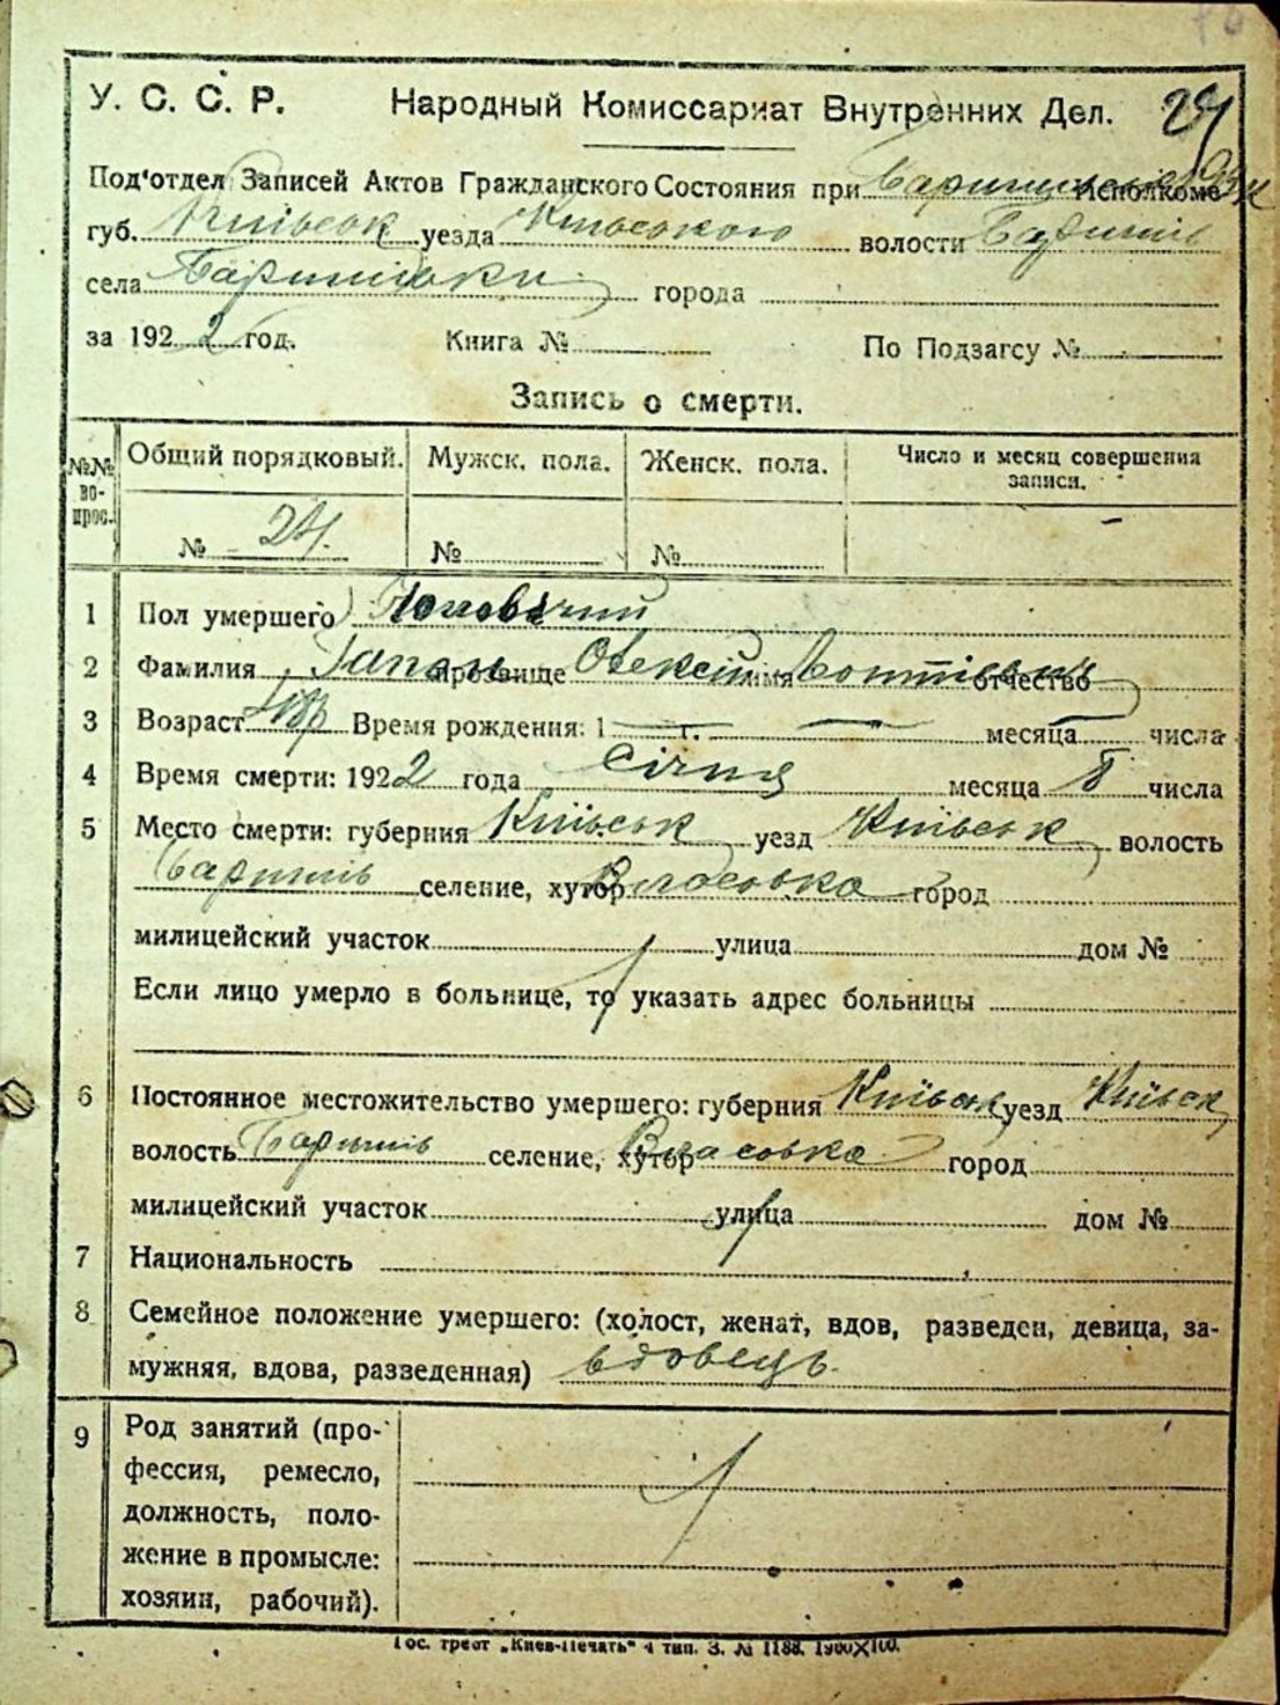 У. С. С. Р. Народный Комиссариат Внутренних Дел. 24
Под'отдел Записей Актов Гражданского Состояния при Исполкоме
губ. Київськ уезда Київського волости Баришів
села Баришівки города
за 1922 год. Книга № По Подзагсу №
Запись о смерти.
№№ вопрос. Общий порядковый. Мужск. пола. Женск. пола. Число и месяц совершения записи.
№ 24. № №
1 Пол умершего Чоловічий
2 Фамилия Гапон прозвище Олексій имя отчество
3 Возраст Время рождения: 1 г. месяца числа
4 Время смерти: 1922 года Січня месяца числа
5 Место смерти: губерния Київськ уезд Київськ волость
Баришів селение, хутор Власовка город
милицейский участок улица дом №
Если лицо умерло в больнице, то указать адрес больницы
6 Постоянное местожительство умершего: губерния Київськ уезд Київськ
волость Баришів селение, хутор Власовка город
милицейский участок улица дом №
7 Национальность
8 Семейное положение умершего: (холост, женат, вдов, разведен, девица, за-
мужняя, вдова, разведенная) вдовець.
9 Род занятий (про-
фессия, ремесло,
должность, поло-
жение в промысле:
хозяин, рабочий).
Гос. трест „Киев-Печать" 4 тип. З. № 1188. 1900X100.